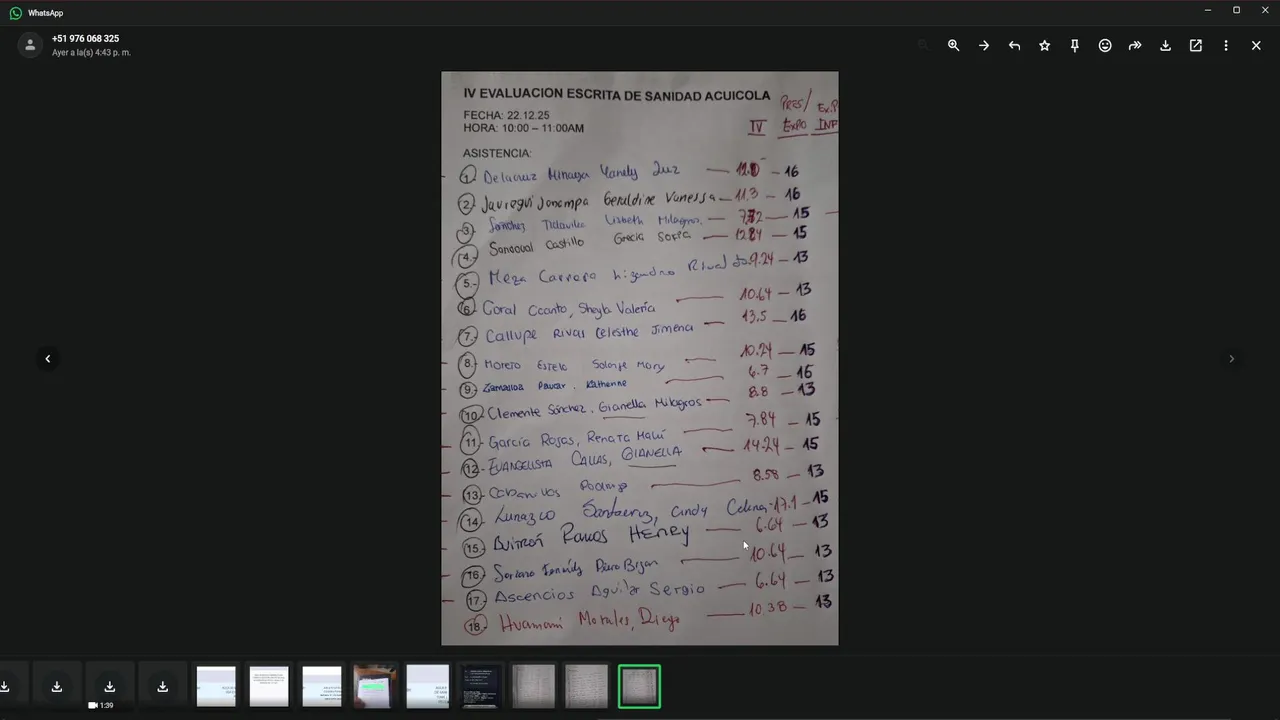 WhatsApp
+51 976 068 325
Ayer a la(s) 4:43 p. m.
IV EVALUACION ESCRITA DE SANIDAD ACUICOLA
FECHA: 22.12.25
HORA: 10:00 – 11:00AM
IV PRES/EXPO INF
ASISTENCIA:
1. Delacruz Minaya Yanely Luz — 16
2. Jauregui Jonampa Geraldine Vanessa — 11.3 — 16
3. Sanchez Lisbeth Milagros. — 15
4. Sandoval Castillo Grecia Sofia — 15
5.- Meza Carrera 9.24 — 13
6. Coral Ccanto, Sheyla Valeria — 10.64 — 13
7.- Callupe Rivas Celesthe Jimena — 13.5 — 16
8.- Moreno Estela Solanje Mary — 10.24 — 15
9.- Zamalloa Paucar. Katherine — 6.7 — 16
10.- Clemente Sánchez, Gianella Milagros — 8.8 — 13
11.- García Rojas, Renata Malú — 7.84 — 15
12.- EVANGELISTA CALLAS, GIANELLA — 14.24 — 15
13.- Rodrigo — 8.58 — 13
14.- Lunazco Santacruz, Cindy Celena - 17.1 — 15
15.- Buitrón Ramos HENRY — 6.64 — 13
16.- Soriano Piero Bryan — 10.64 — 13
17.- Ascencios Aguilar Sergio — 6.64 — 13
18.- Huamani Morales, Diego — 10.38 — 13
1:39